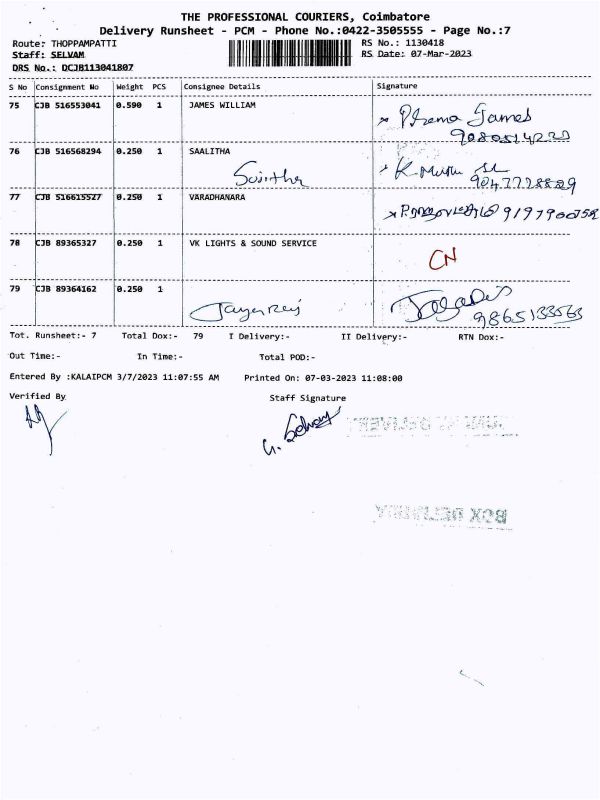 THE PROFESSIONAL COURIERS, Coimbatore
Delivery Runsheet - PCM - Phone No.:0422-3505555 - Page No.:7
Route: THOPPAMPATTI RS No.: 1130418
Staff: SELVAM RS Date: 07-Mar-2023
DRS No.: DCJB113041807
S No Consignment No Weight PCS Consignee Details Signature
75 CJB 516553041 0.590 1 JAMES WILLIAM
James
76 CJB 516568294 0.250 1 SAALITHA
9047728829
77 CJB 516615527 0.250 1 VARADHANARA
78 CJB 89365327 0.250 1 VK LIGHTS & SOUND SERVICE
CN
79 CJB 89364162 0.250 1
9865133563
Tot. Runsheet:- 7 Total Dox:- 79 I Delivery:- II Delivery:- RTN Dox:-
Out Time:- In Time:- Total POD:-
Entered By :KALAIPCM 3/7/2023 11:07:55 AM Printed On: 07-03-2023 11:08:00
Verified By Staff Signature
BOX DELIVERY